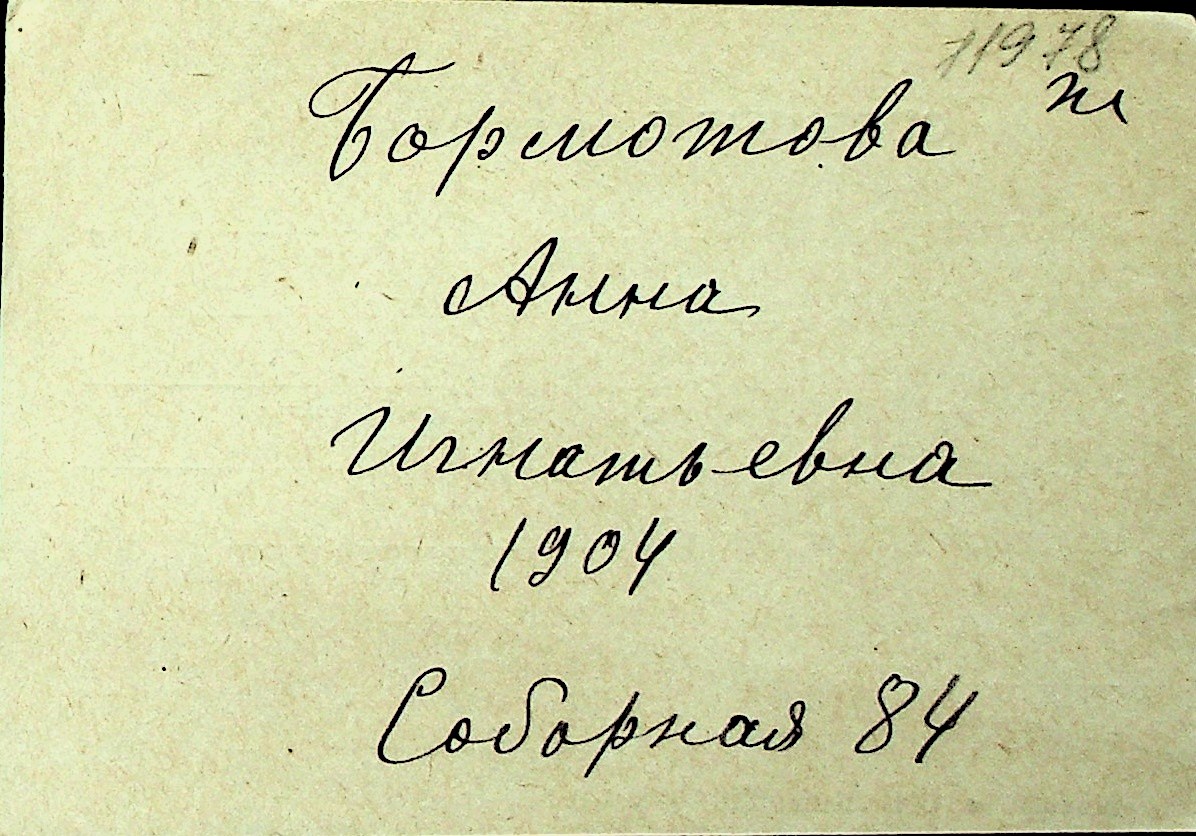 11978
Бормотова
Анна
Игнатьевна
1904
Соборная 84